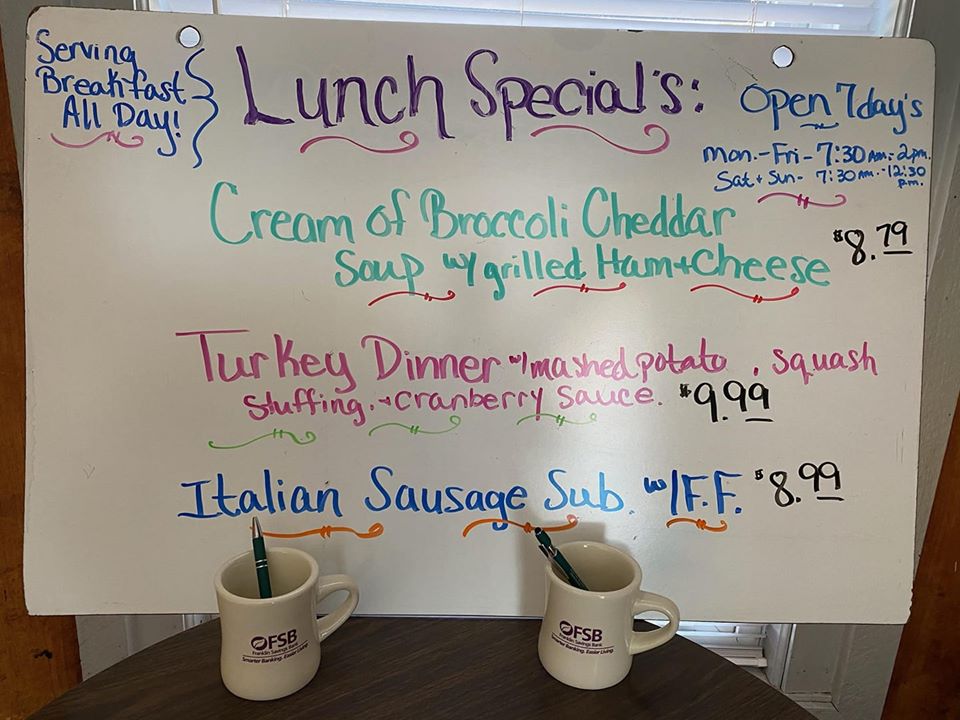 Serving
Breakfast
All Day!
Lunch Special's:
Open 7 day's
Mon.-Fri - 7:30 Am.-2pm.
Sat + Sun - 7:30 Am.-12:30 p.m.
Cream of Broccoli Cheddar
Soup w/ grilled Ham + Cheese $8.79
Turkey Dinner w/ mashed potato, squash
stuffing. + cranberry sauce. $9.99
Italian Sausage Sub. w/ F.F. $8.99
FSB
Franklin Savings Bank
Smarter Banking. Easier Living.
FSB
Franklin Savings Bank
Smarter Banking. Easier Living.